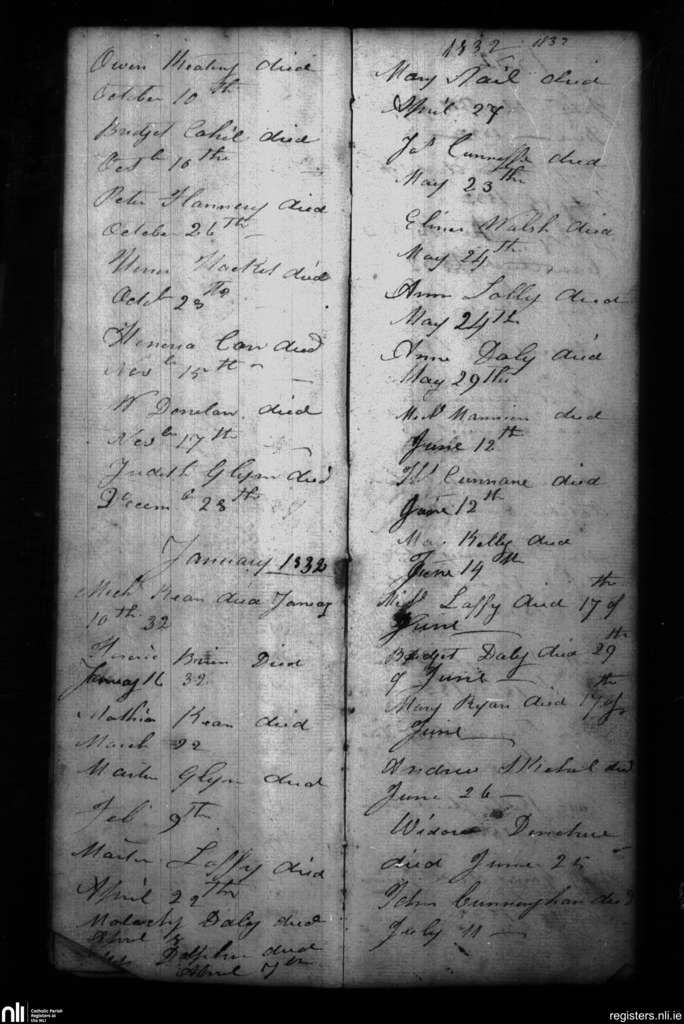 Owen Keating died
October 10th
Bridget Cahil died
Octbr 16th
Peter Flannery died
October 26th
Hacket died
Octbr 28th
Honoria Carr died
Novbr 15th
W Donelan died
Novbr 17th
Judith Glynn died
Decemb 28th
January 1832
Mich Kean died January
10th 32
Brien Died
January 16 32
Mathias Kean died
March 22
Martin Glynn died
Feb 9th
Martin Laffy died
April 22th
Malachy Daly died
April
died
April 7th
1832 1832
Mary Nail died
April 27
Jas died
May 23th
Walsh died
May 24th
Ann Lally died
May 24th
Anne Daly died
May 29th
Michl Mannion died
June 12th
Cunnane died
June 12th
Kelly died
June 14th
Laffy died 17th of
June
Bridget Daly died 29th
of June
Mary Ryan died 17th of
June
Andrew died
June 26
Widow Donohue
died June 25
John Cunningham died
July 11
nli
Catholic Parish
Registers at
the NLI
registers.nli.ie